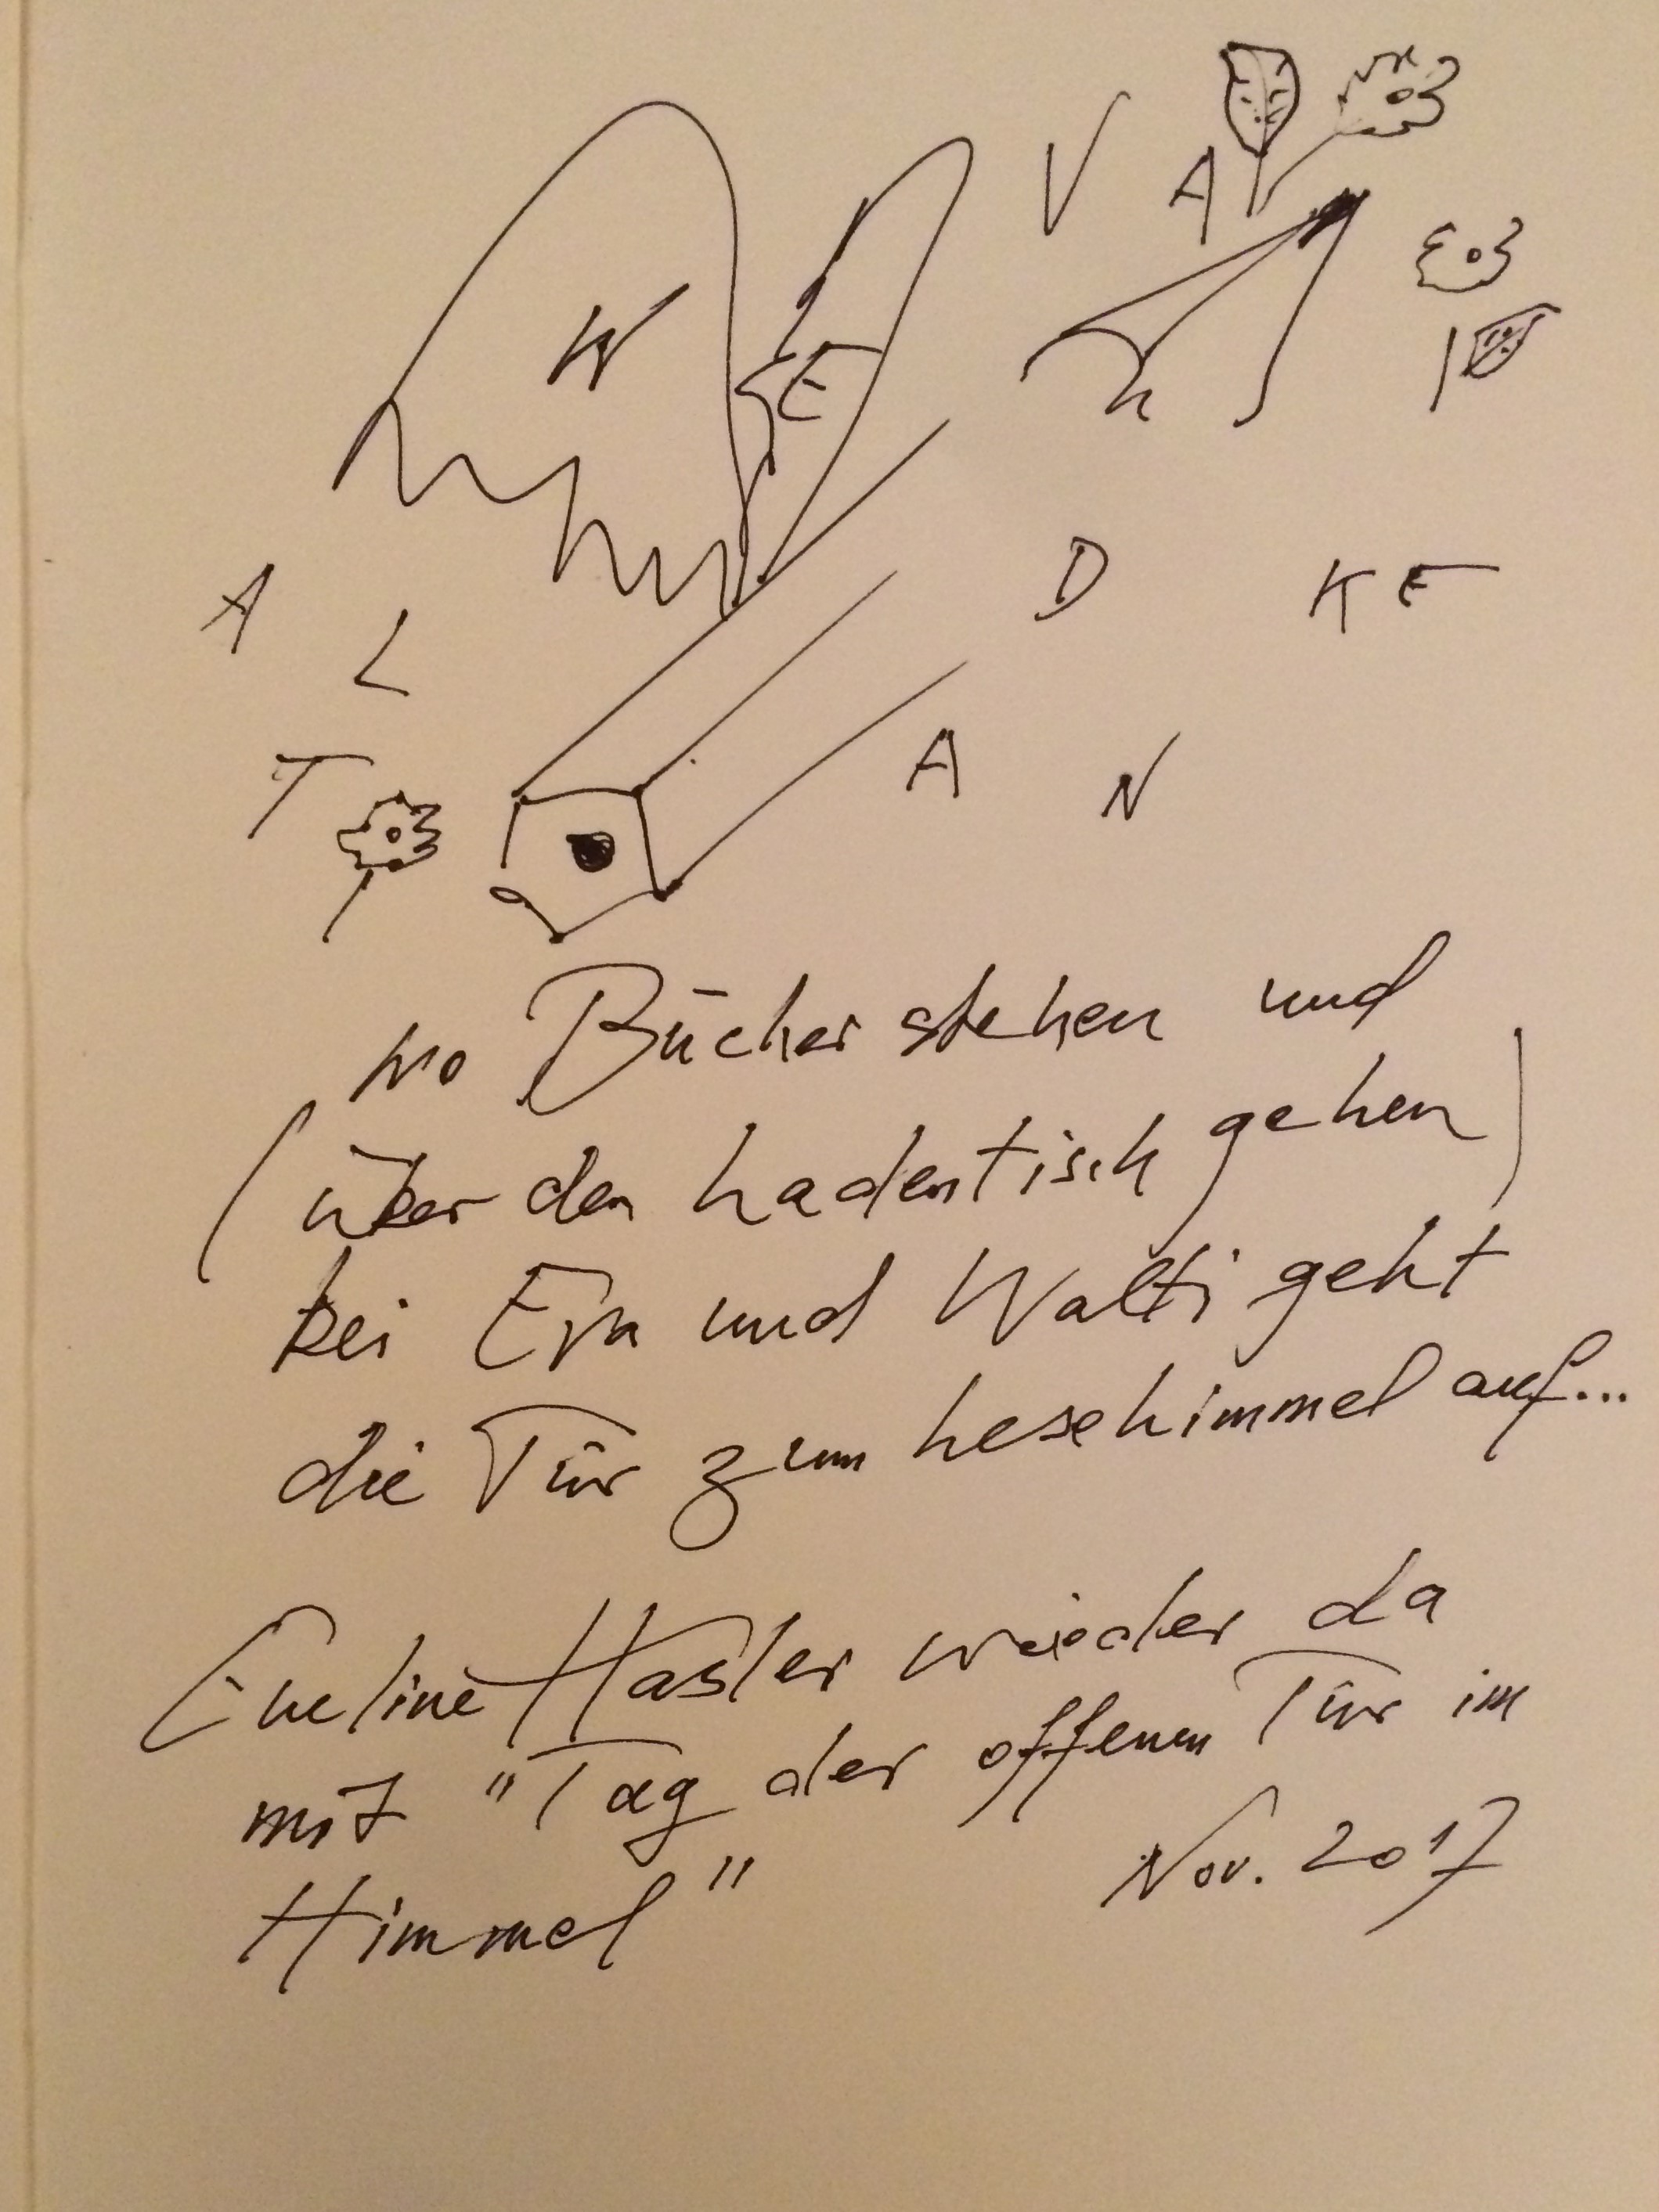 W E V A
A L D K E
T A N
wo Bücher stehen und
(über den Ladentisch gehen)
bei Eva und Walti geht
die Tür zum Lesehimmel auf...
Eveline Hasler wieder da
mit "Tag der offenen Tür im
Himmel" Nov. 2017